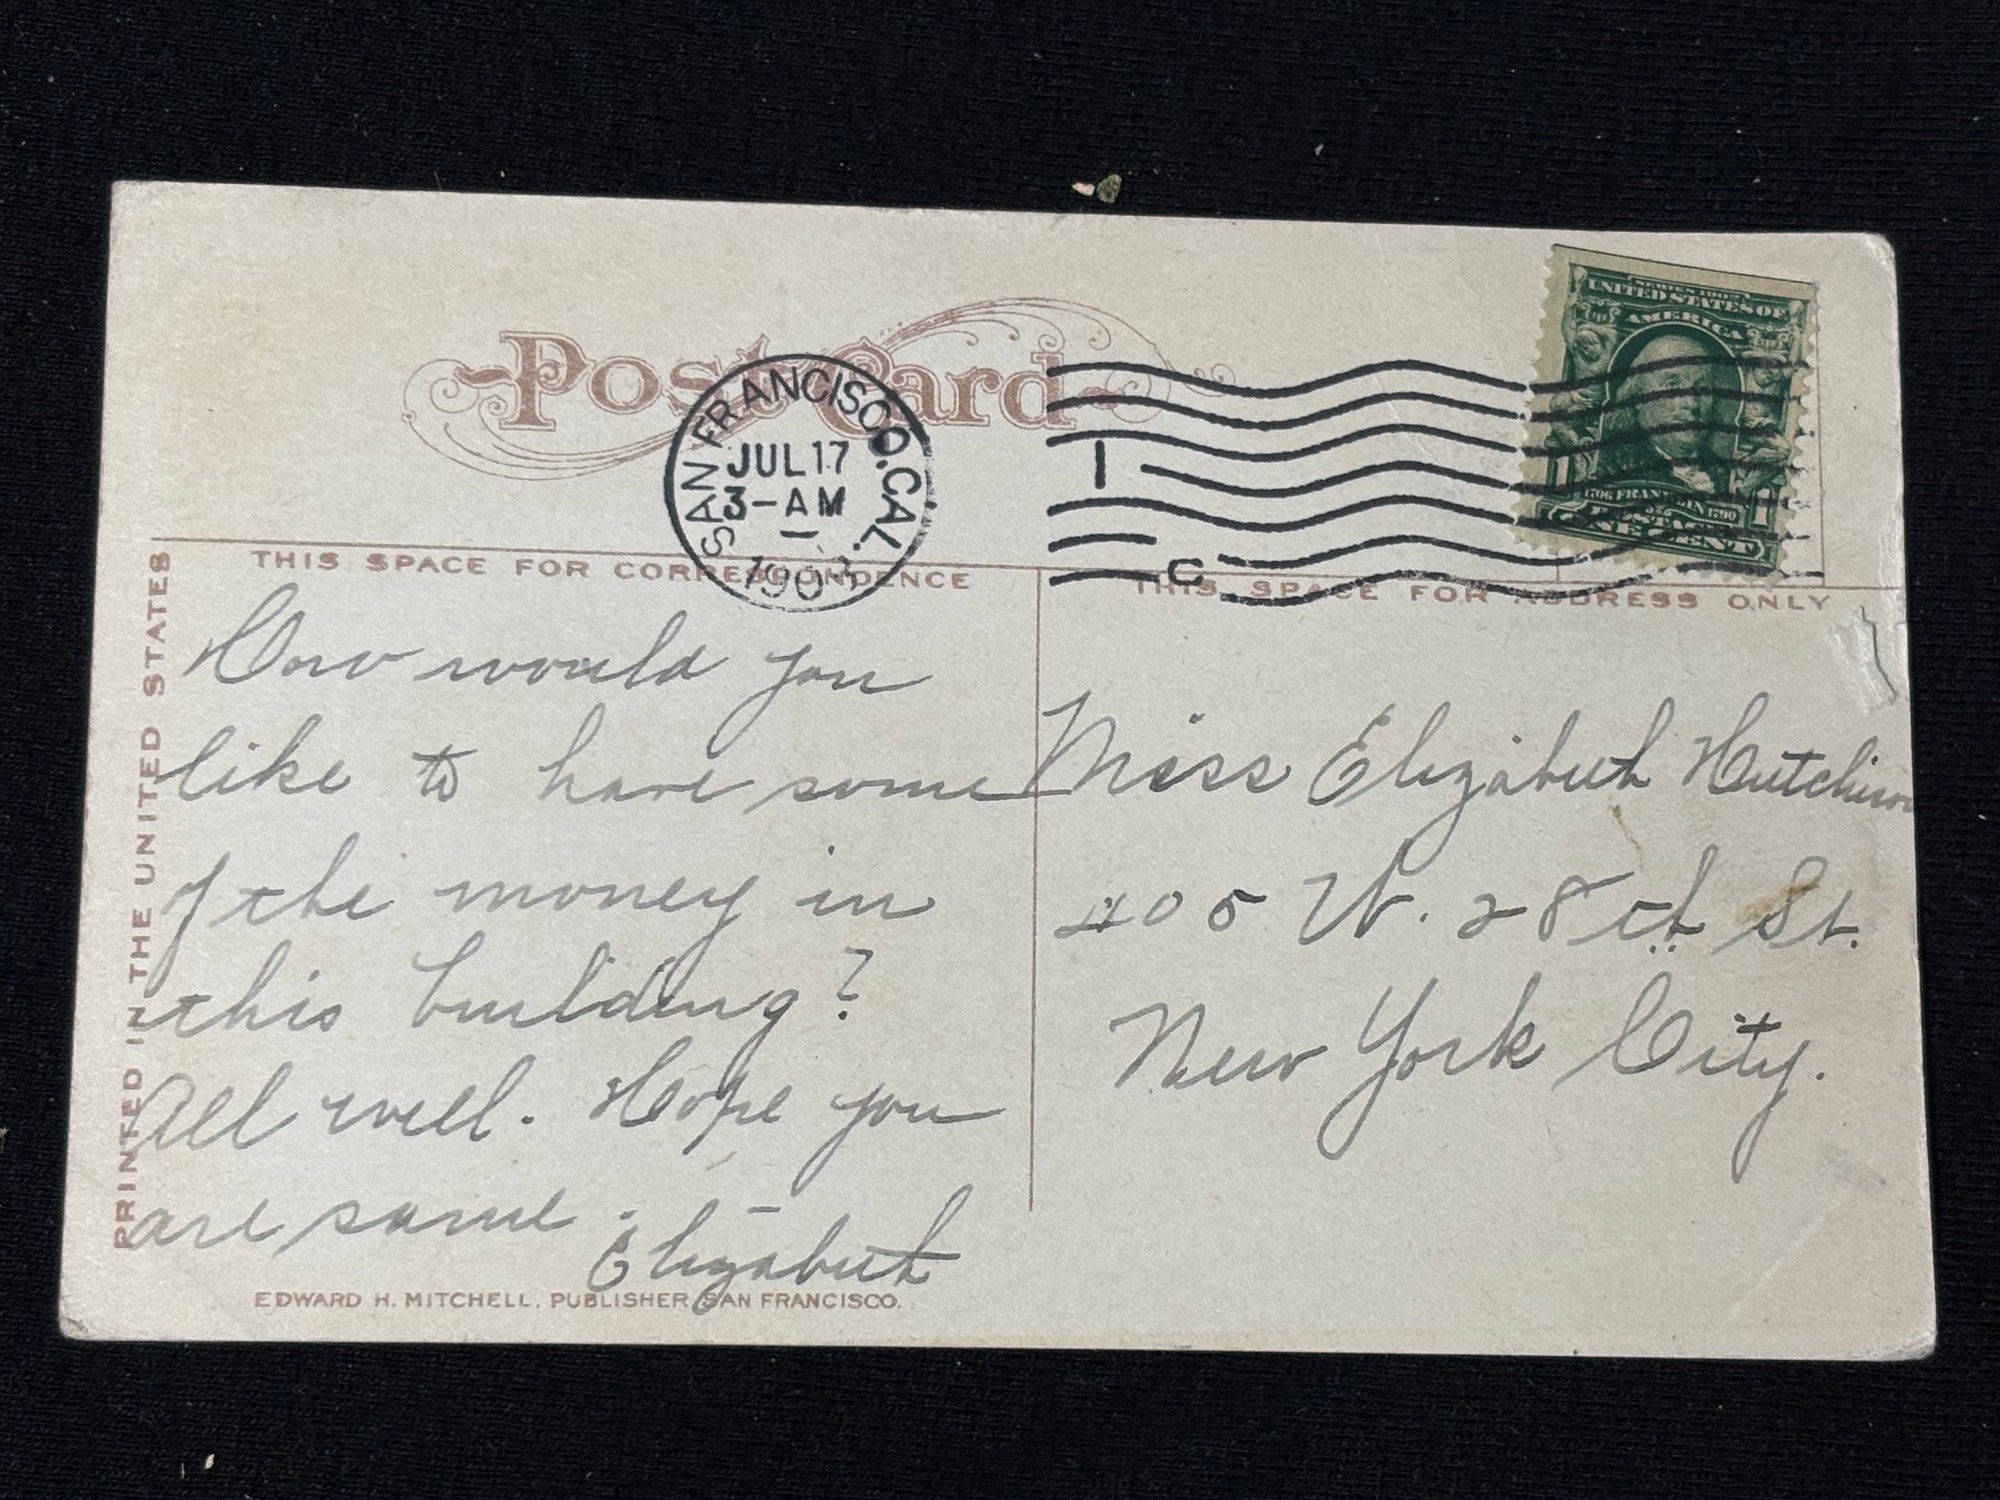 Post Card
SAN FRANCISCO. CAL.
JUL 17
3-AM
1
C
SERIES 1902
UNITED STATES OF
AMERICA
1706 FRANKLIN 1790
POSTAGE
1 1
ONE CENT
THIS SPACE FOR CORRESPONDENCE
THIS SPACE FOR ADDRESS ONLY
PRINTED IN THE UNITED STATES
How would you
like to have some
of the money in
this building?
All well. Hope you
are same. –
Elizabeth
Miss Elizabeth Hutchison
405 W. 28th St.
New York City.
EDWARD H. MITCHELL, PUBLISHER, SAN FRANCISCO.